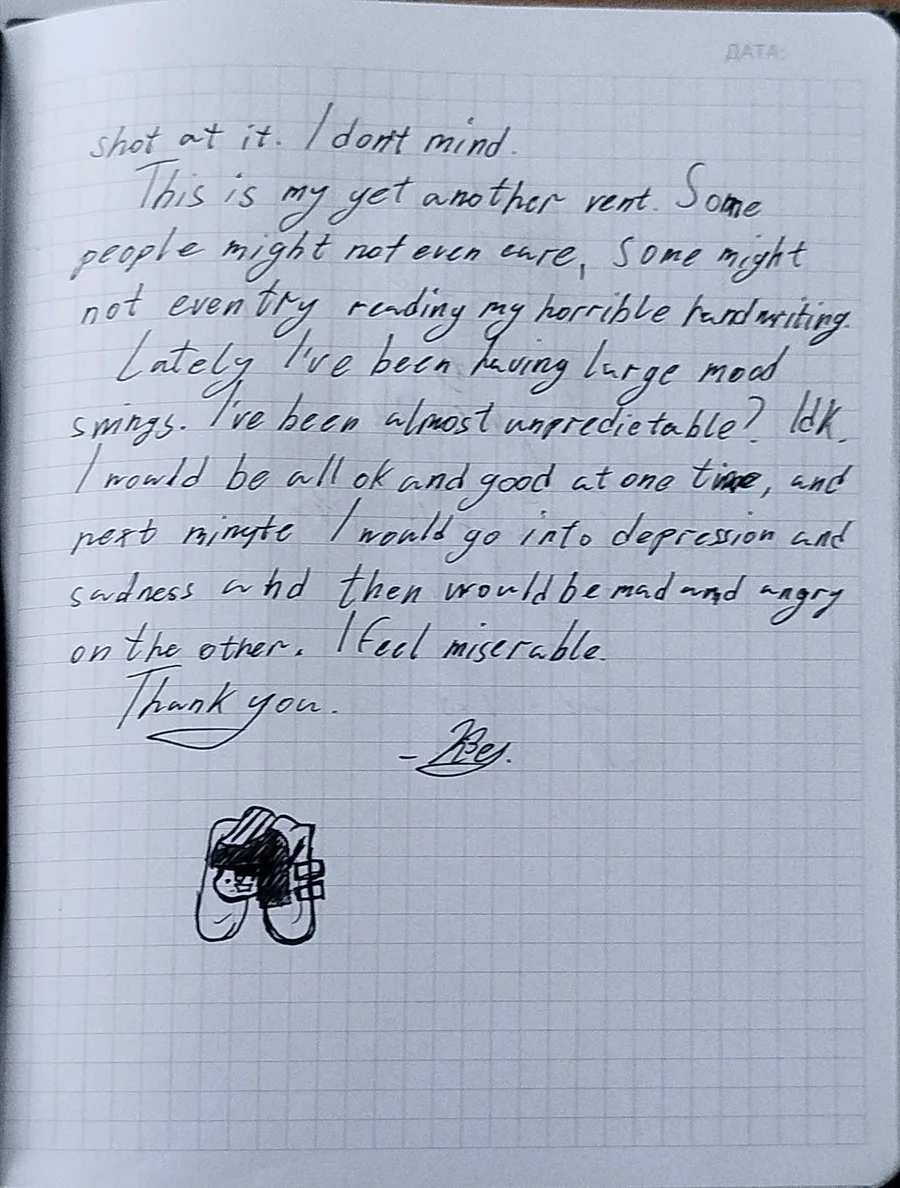 ДАТА:
shot at it. I don't mind.
This is my yet another vent. Some
people might not even care, some might
not even try reading my horrible handwriting.
Lately I've been having large mood
swings. I've been almost unpredictable? Idk.
I would be all ok and good at one time, and
next minute I would go into depression and
sadness and then would be mad and angry
on the other. I feel miserable.
Thank you.